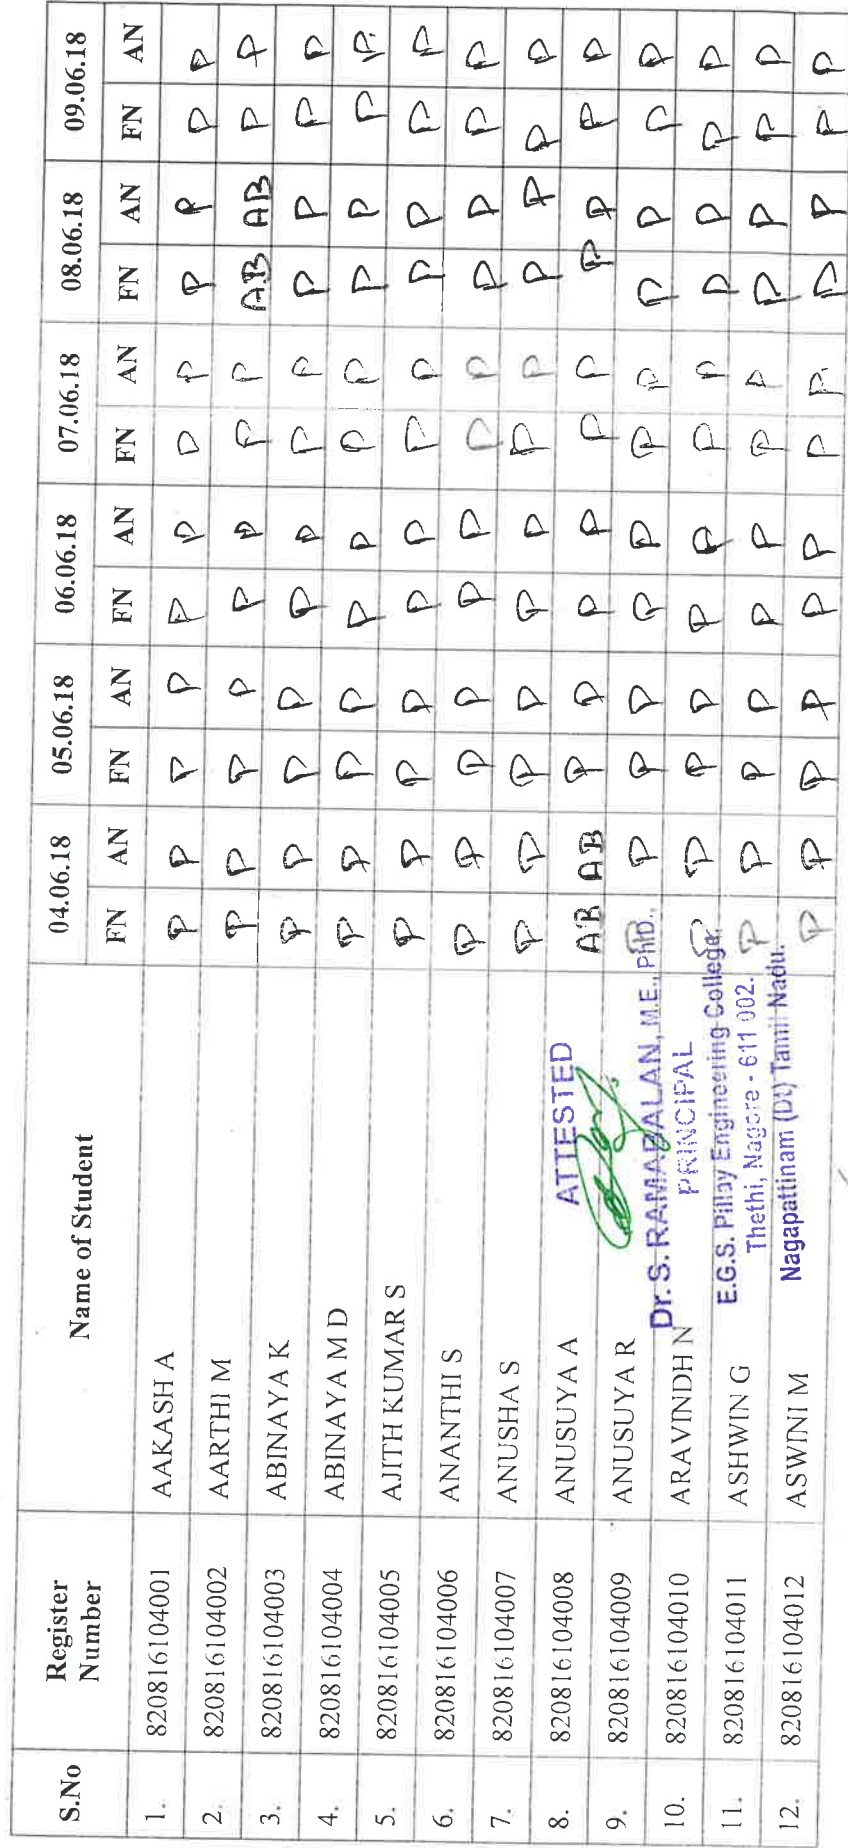 S.No Register Number Name of Student 04.06.18 05.06.18 06.06.18 07.06.18 08.06.18 09.06.18
FN AN FN AN FN AN FN AN FN AN FN AN
1. 820816104001 AAKASH A P P P P P P P P P P P P
2. 820816104002 AARTHI M P P P P P P P P AB AB P P
3. 820816104003 ABINAYA K P P P P P P P P P P P P
4. 820816104004 ABINAYA M D P P P P P P P P P P P P
5. 820816104005 AJITH KUMAR S P P P P P P P P P P P P
6. 820816104006 ANANTHI S P P P P P P P P P P P P
7. 820816104007 ANUSHA S P P P P P P P P P P P P
8. 820816104008 ANUSUYA A AB AB P P P P P P P P P P
9. 820816104009 ANUSUYA R P P P P P P P P P P P P
10. 820816104010 ARAVINDH N P P P P P P P P P P P P
11. 820816104011 ASHWIN G P P P P P P P P P P P P
12. 820816104012 ASWINI M P P P P P P P P P P P P
ATTESTED
Dr. S. RAMABALAN, M.E., PhD.,
PRINCIPAL
E.G.S. Pillay Engineering College,
Thethi, Nagore - 611 002.
Nagapattinam (Dt) Tamil Nadu.